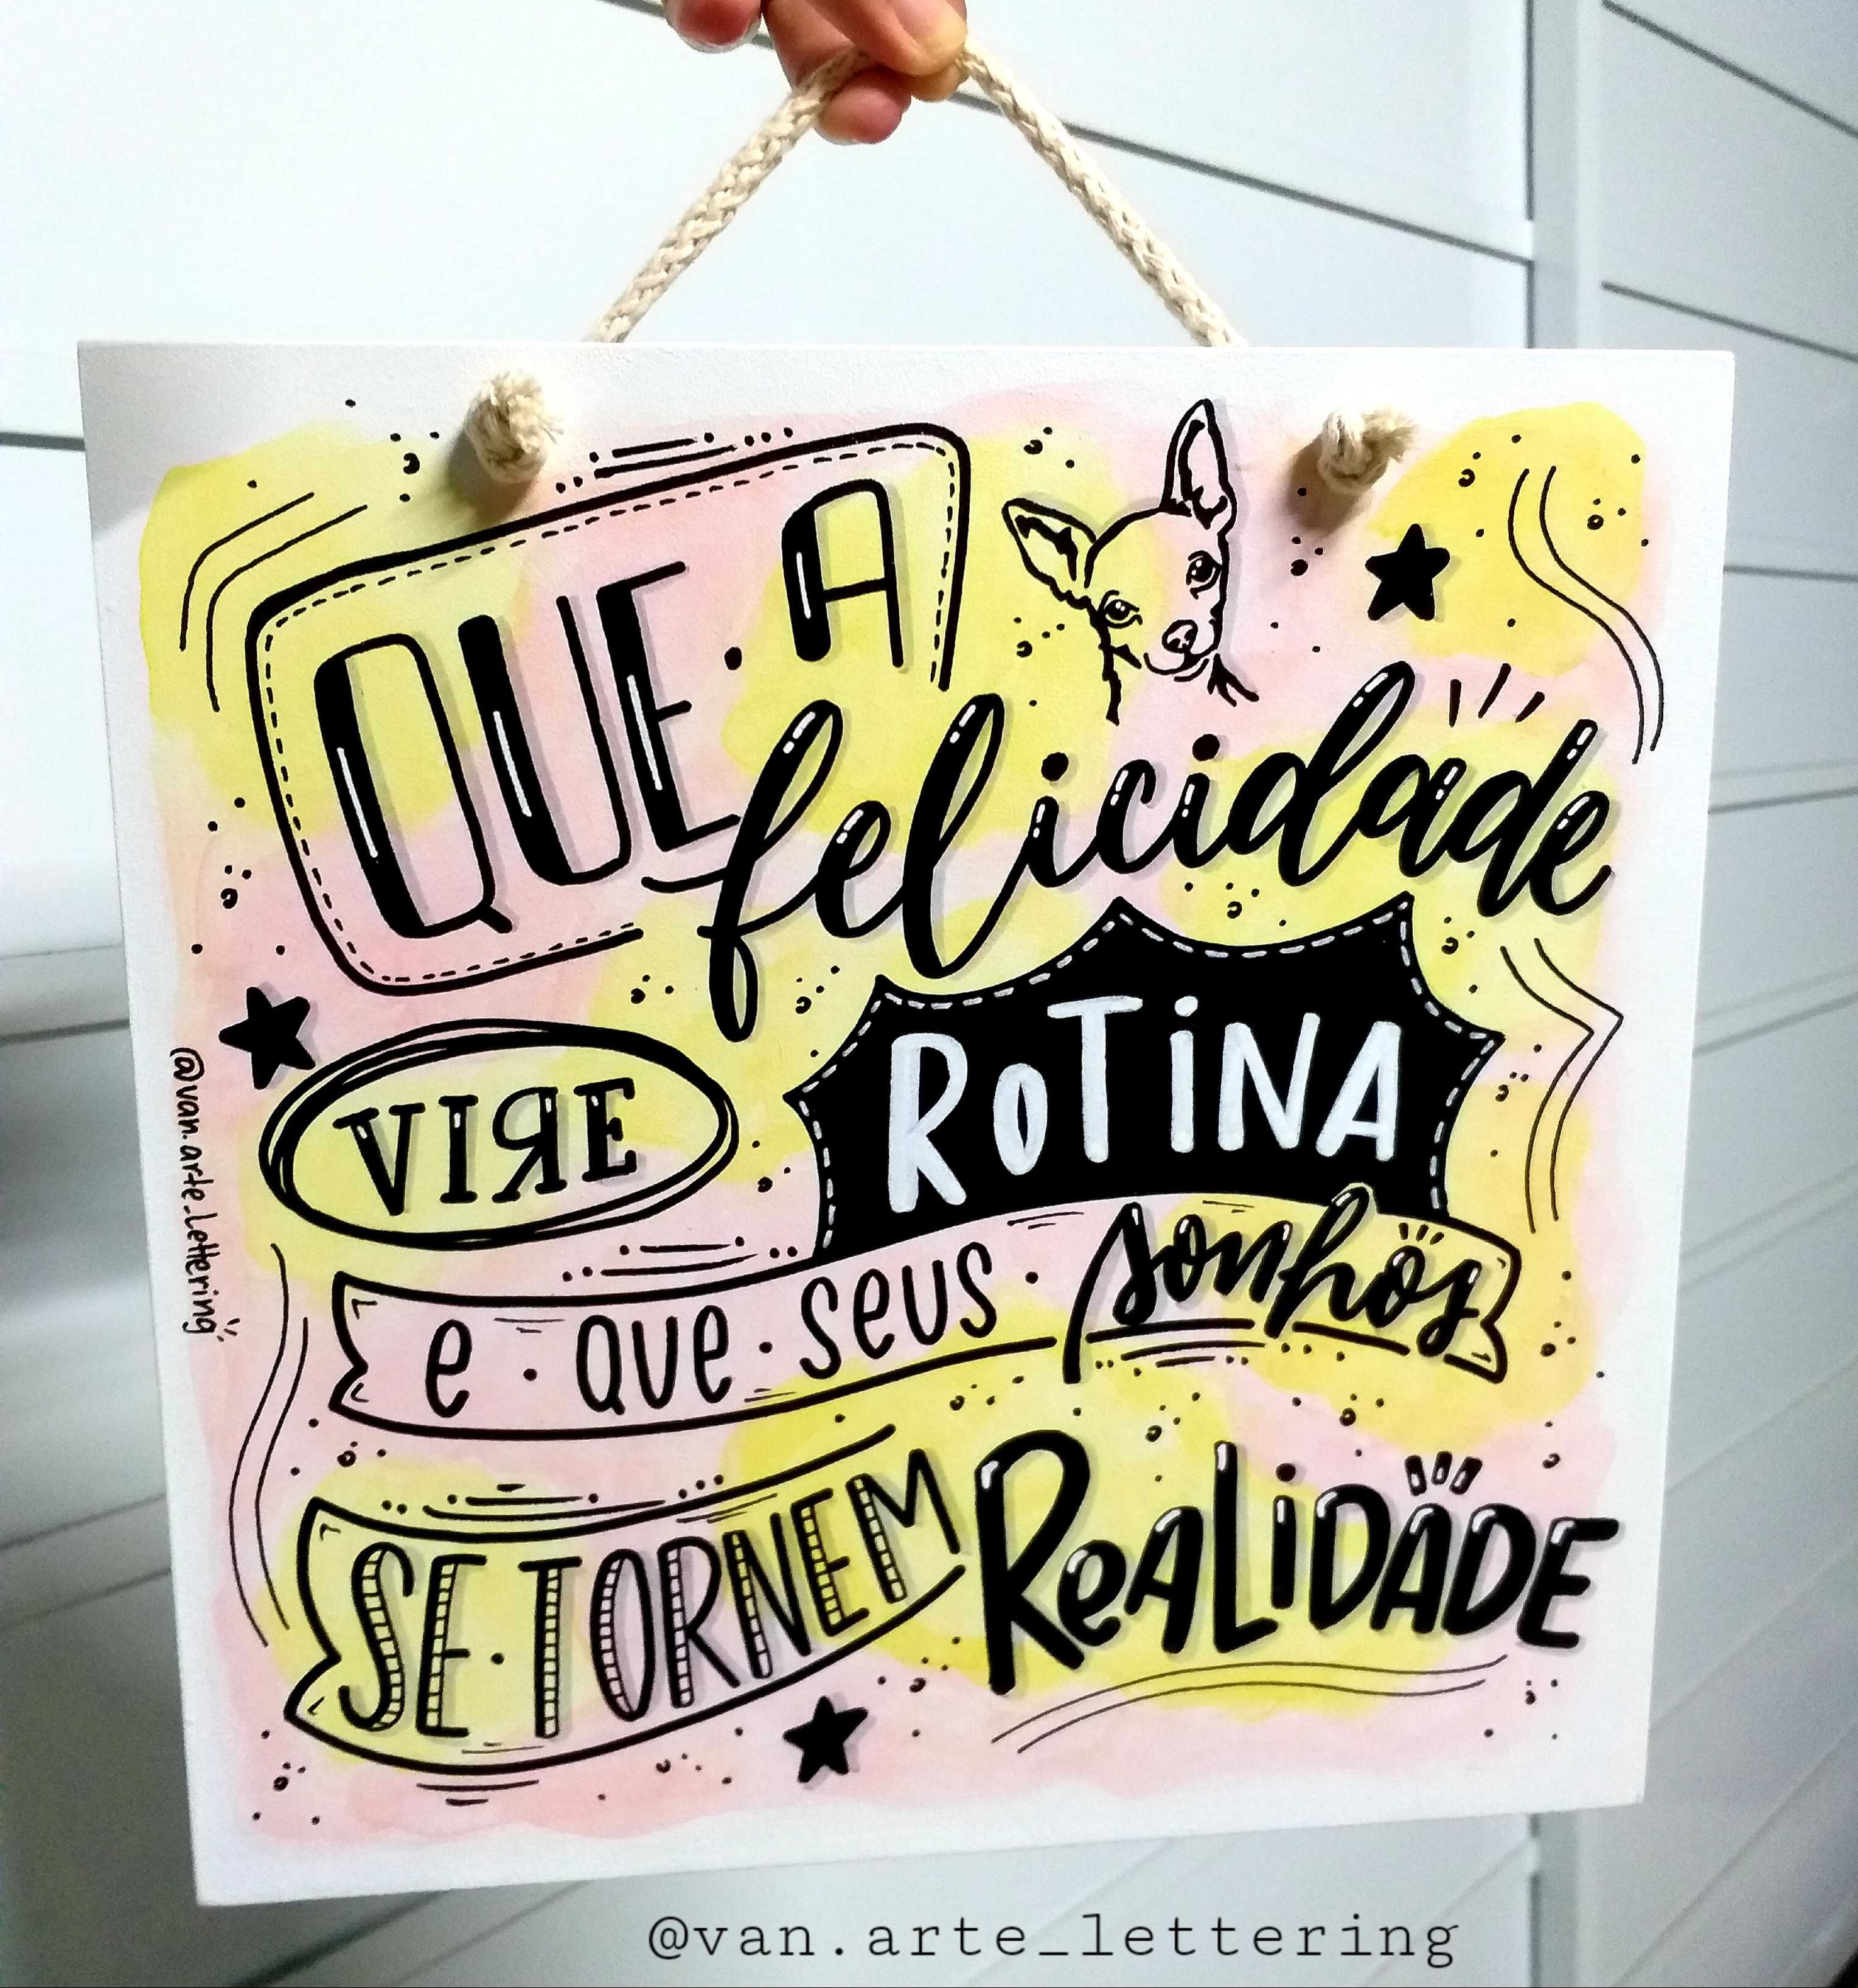 QUE · A
felicidade
VIRE ROTINA
e · que · seus · sonhos
SE · TORNEM REALIDADE
@van.arte_lettering
@van.arte_lettering